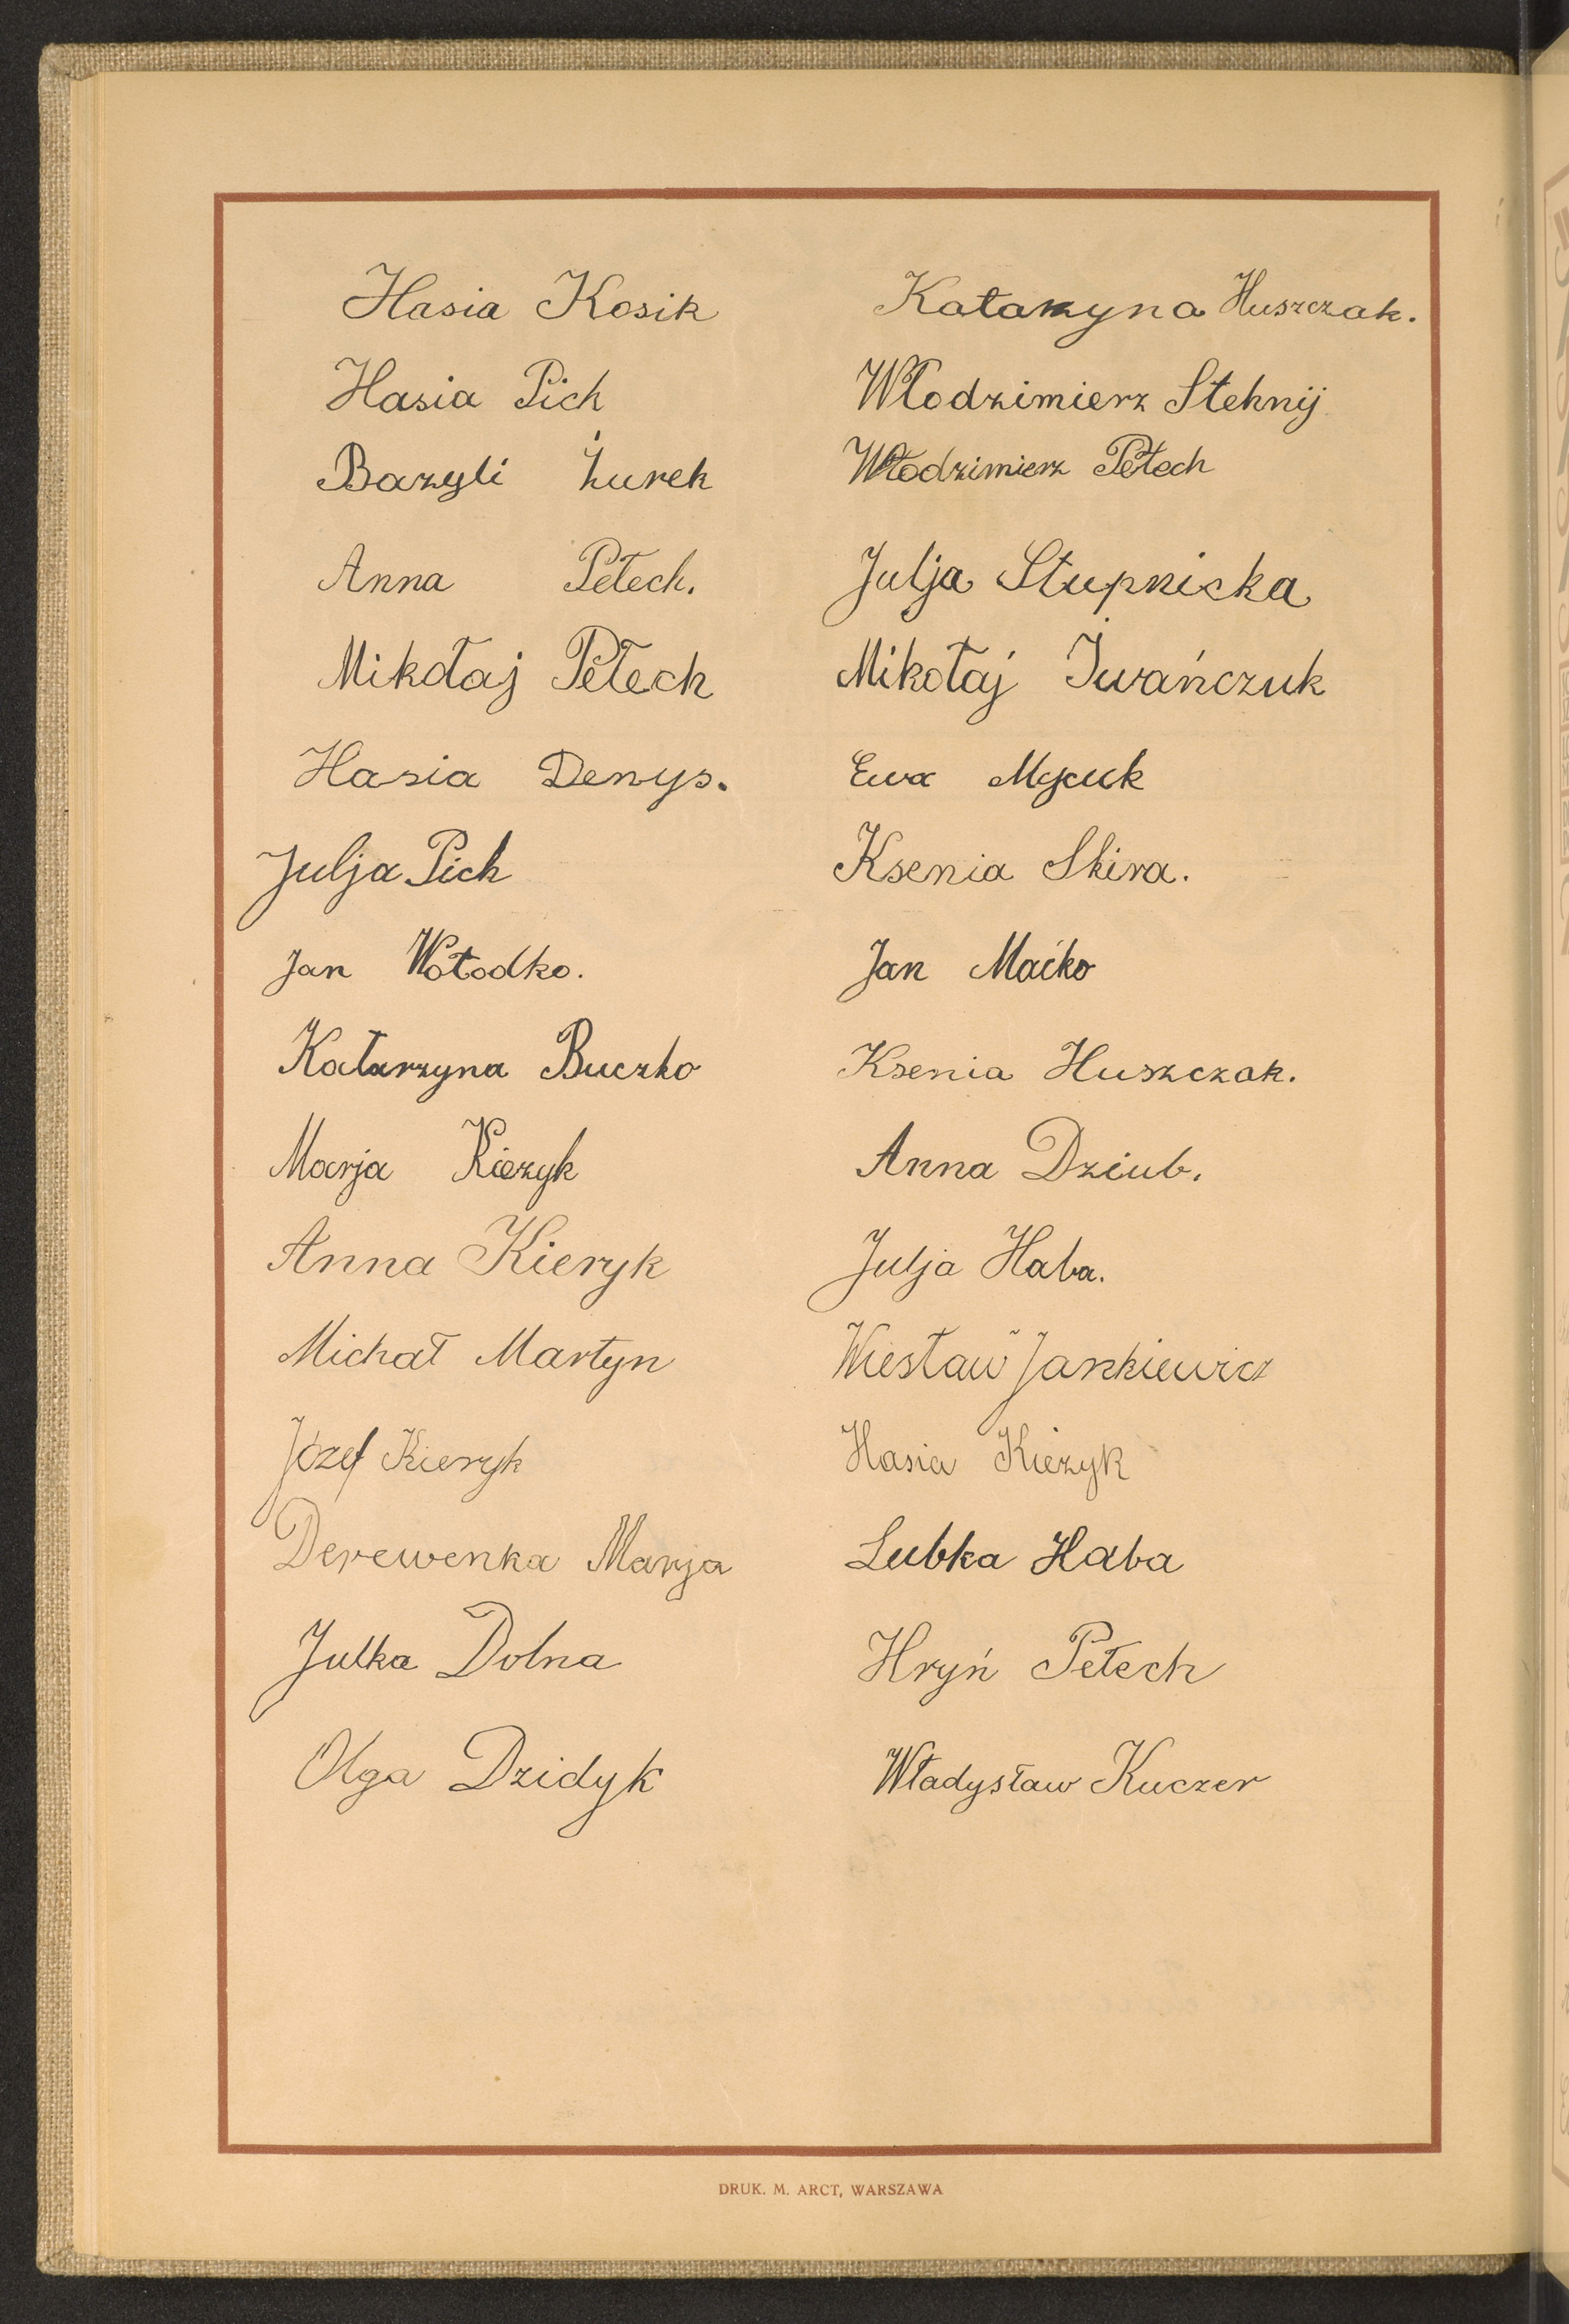 Hasia Kosik
Hasia Pich
Bazyli Żurek
Anna Petech.
Mikołaj Pełech
Hasia Denys.
Julja Pich
Jan Wołodko.
Katarzyna Buczko
Marja Kiezyk
Anna Kieryk
Michał Martyn
Józef Kieryk
Derewenka Marja
Julka Dolna
Olga Dzidyk
Katarzyna Huszczak.
Włodzimierz Stehnij
Włodzimierz Pełech
Julja Stupnicka
Mikołaj Iwańczuk
Ewa
Ksenia Skira.
Jan Maćko
Ksenia Huszczak.
Anna Dziub.
Julja Haba.
Wiesław Jankiewicz
Hasia Kiezyk
Lubka Haba
Hryń Pełech
Władysław Kuczer
DRUK. M. ARCT, WARSZAWA